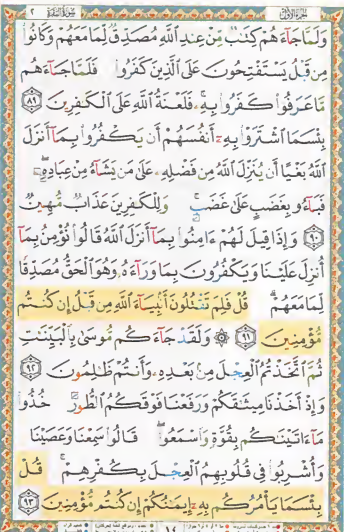 سُورَةُ الْبَقَرَةِ ٢
الجزء الأول
وَلَمَّا جَآءَهُمْ كِتَٰبٌ مِّنْ عِندِ ٱللَّهِ مُصَدِّقٌ لِّمَا مَعَهُمْ وَكَانُوا۟
مِن قَبْلُ يَسْتَفْتِحُونَ عَلَى ٱلَّذِينَ كَفَرُوا۟ فَلَمَّا جَآءَهُم
مَّا عَرَفُوا۟ كَفَرُوا۟ بِهِۦ ۚ فَلَعْنَةُ ٱللَّهِ عَلَى ٱلْكَٰفِرِينَ ٨٩
بِئْسَمَا ٱشْتَرَوْا۟ بِهِۦٓ أَنفُسَهُمْ أَن يَكْفُرُوا۟ بِمَآ أَنزَلَ
ٱللَّهُ بَغْيًا أَن يُنَزِّلَ ٱللَّهُ مِن فَضْلِهِۦ عَلَىٰ مَن يَشَآءُ مِنْ عِبَادِهِۦ ۖ
فَبَآءُو بِغَضَبٍ عَلَىٰ غَضَبٍ ۚ وَلِلْكَٰفِرِينَ عَذَابٌ مُّهِينٌ
٩٠ وَإِذَا قِيلَ لَهُمْ ءَامِنُوا۟ بِمَآ أَنزَلَ ٱللَّهُ قَالُوا۟ نُؤْمِنُ بِمَآ
أُنزِلَ عَلَيْنَا وَيَكْفُرُونَ بِمَا وَرَآءَهُۥ وَهُوَ ٱلْحَقُّ مُصَدِّقًا
لِّمَا مَعَهُمْ ۗ قُلْ فَلِمَ تَقْتُلُونَ أَنۢبِيَآءَ ٱللَّهِ مِن قَبْلُ إِن كُنتُم
مُّؤْمِنِينَ ٩١ ۞ وَلَقَدْ جَآءَكُم مُّوسَىٰ بِٱلْبَيِّنَٰتِ
ثُمَّ ٱتَّخَذْتُمُ ٱلْعِجْلَ مِنۢ بَعْدِهِۦ وَأَنتُمْ ظَٰلِمُونَ ٩٢
وَإِذْ أَخَذْنَا مِيثَٰقَكُمْ وَرَفَعْنَا فَوْقَكُمُ ٱلطُّورَ خُذُوا۟
مَآ ءَاتَيْنَٰكُم بِقُوَّةٍ وَٱسْمَعُوا۟ ۖ قَالُوا۟ سَمِعْنَا وَعَصَيْنَا
وَأُشْرِبُوا۟ فِى قُلُوبِهِمُ ٱلْعِجْلَ بِكُفْرِهِمْ ۚ قُلْ
بِئْسَمَا يَأْمُرُكُم بِهِۦٓ إِيمَٰنُكُمْ إِن كُنتُم مُّؤْمِنِينَ ٩٣
١٤